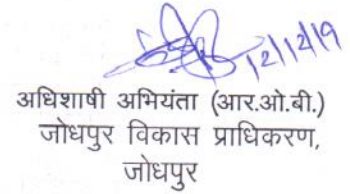 12/12/19
अधिशाषी अभियंता (आर.ओ.बी.)
जोधपुर विकास प्राधिकरण,
जोधपुर